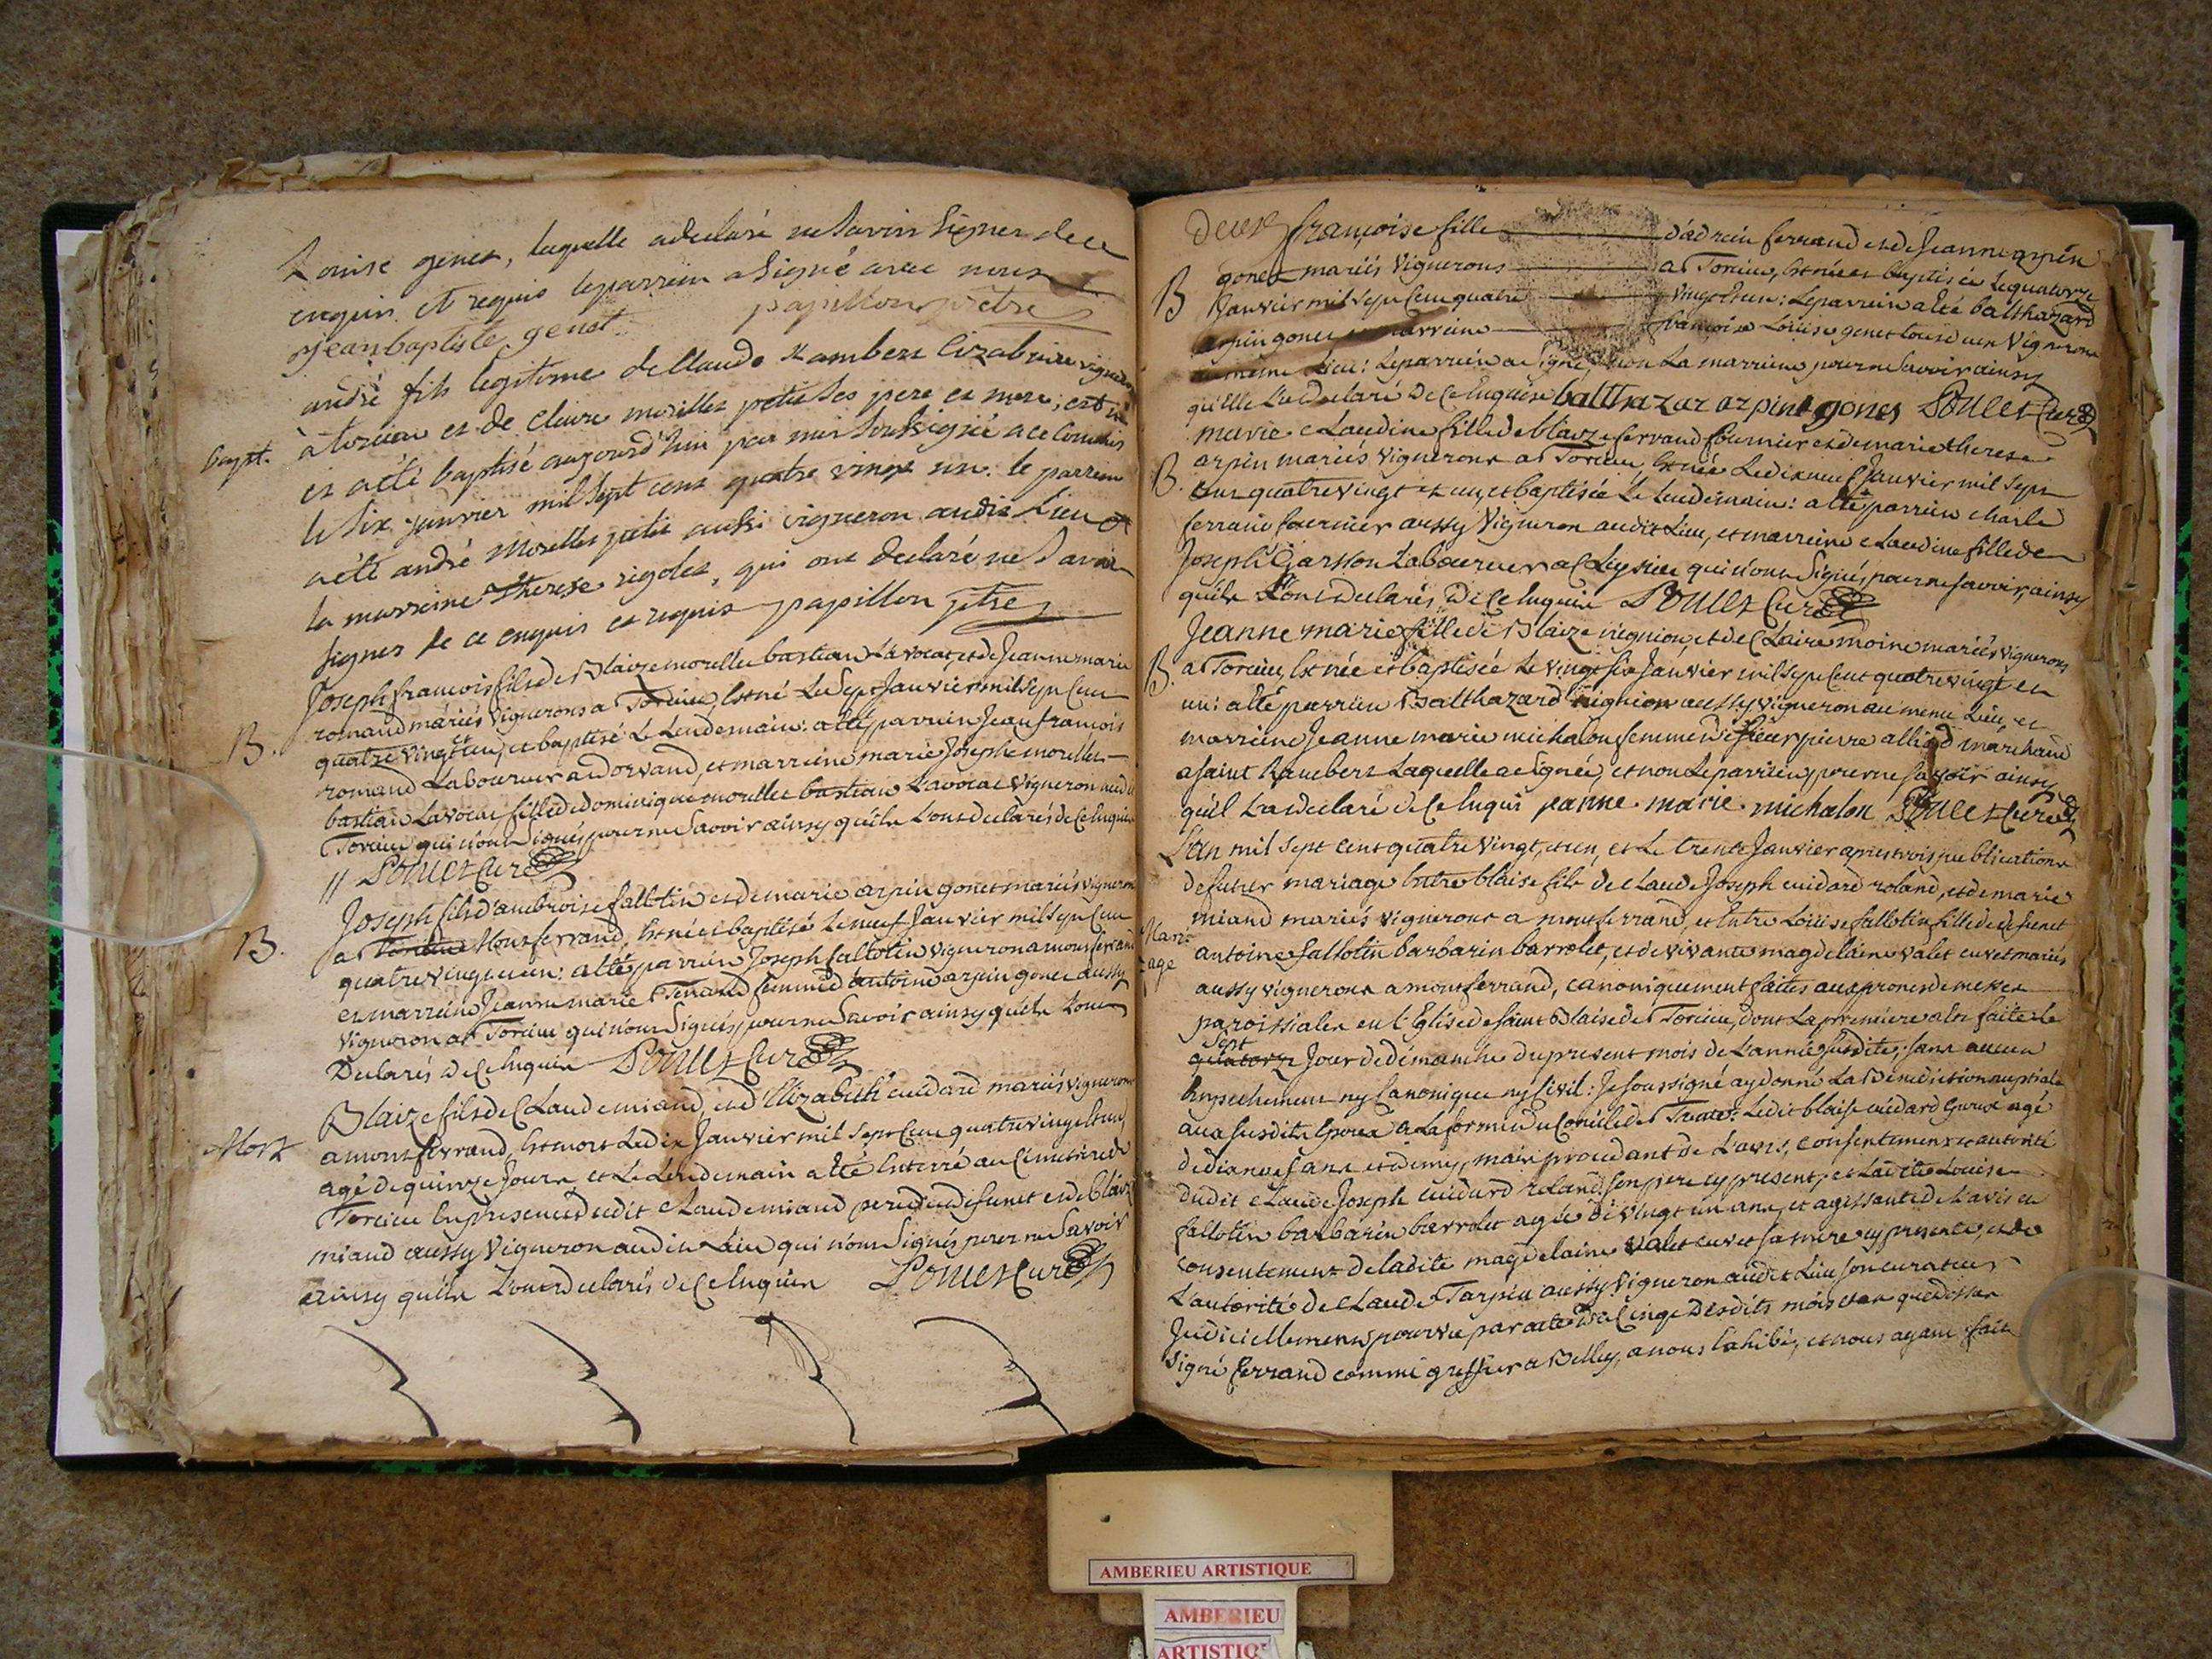 Louise genet, laquelle a declaré ne Savoir Signer de ce
enquis et requis le parrein a Signé avec nous
jean baptiste genet papillon ptre
bapt.
andré fils legitime de Claude Lambert vigneron
à torcieu et de Claire morellet petit Ses pere et mere, est né
et a été baptisé aujourd'hui par moi Soussigné a ce Commis
le Six janvier mil Sept cent quatre vingt un. le parrein
a été andré Morellet petit aussi vigneron audit Lieu et
la marreine Therese rigolet, qui ont declaré ne Savoir
signer de ce enquis et requis papillon ptre
B.
Joseph francois fils de Blaize morellet bastian Lavocat, et de Jeanne marie
romand mariés Vignerons a Torcieu, Est né Le Sept Janvier mil Sept Cent
quatre vingt et un, et baptisé Le Lendemain: a eté parrein Jean francois
romand Laboureur a dorvand, et marreine marie Josephe morellet
bastian Lavocat fille de dominique morellet bastian Lavocat Vigneron audit
Torcieu qui n'ont Signés pour ne Savoir ainsy qu'ils L'ont declarés de Ce Enquis
// Poncet Curé
B.
Joseph fils d'ambroise fallotin et de marie arpin gonet mariés vignerons
a Torcieu Montferrand, Est né et baptisé Le neuf Janvier mil Sept Cent
quatre vingt et un: a eté parrein Joseph fallotin vigneron a montferrand
et marreine Jeanne marie Ferrand femme d'antoine arpin gonet aussy
Vigneron a Torcieu qui n'ont Signés pour ne Savoir ainsy qu'ils L'ont
Declarés de Ce Enquis Poncet Curé
Mort
Blaize fils de Claude miand, et d'Elizabeth cuidard mariés vignerons
a montferrand, Est mort Le dix Janvier mil Sept Cent quatre vingt et un,
agé de quinze Jours et Le Lendemain a eté Enterré au Cimetiere de
Torcieu En presence dudit Claude miand pere du defunct et de Blaize
miand aussy Vigneron audit Lieu qui n'ont Signés pour ne Savoir
ainsy qu'ils L'ont declarés de Ce Enquis Poncet Curé
deux
B
françoise fille d'adrien ferrand et de Jeanne arpin
gonet mariés Vignerons a Torcieu, Est née et baptisée Le quatorze
Janvier mil Sept Cent quatre Vingt et un: Le parrein a eté balthazard
arpin gonet et marreine françoise Louise genet tous deux Vignerons
au meme Lieu: Le parrein a Signé, et non La marreine pour ne Savoir ainsy
qu'Elle L'a declaré De Ce Enquise balthazar arpin gones Poncet Curé
B.
marie Claudine fille de blaize ferrand fournier et de marie therese
arpin mariés vignerons a Torcieu, Est née Le dix neuf Janvier mil Sept
Cent quatre vingt et un, et baptisée Le Lendemain: a eté parrein charle
ferrand fournier aussy Vigneron audit Lieu, et marreine Claudine fille de
Joseph Garsson Laboureur a Cleyzieu qui n'ont Signés pour ne Savoir, ainsy
qu'ils L'ont declarés De Ce Enquis Poncet Curé
B.
Jeanne marie fille de Blaize nignion, et de Claire moine mariés vignerons
a Torcieu, Est née et baptisée Le vingt Six Janvier mil Sept Cent quatre vingt et
un: a eté parrein Balthazard nignion aussy vigneron au meme Lieu, et
marreine Jeanne marie michalon femme de sieur pierre alliod marchand
a saint Rambert Laquelle a Signée, et non Le parrein pour ne Savoir ainsy
qu'il L'a declaré de Ce Enquis jeanne. marie. michalon Poncet Curé
Mari
age
L'an mil Sept Cent quatre Vingt, et un, et Le trente Janvier apres trois publications
de futur mariage Entre blaise fils de Claude Joseph cuidard roland, et de marie
miand mariés vignerons a montferrand, et Entre Louise fallotin fille de defunct
antoine fallotin barbarin barrolet, et de vivante magdelaine valet cuvet mariés
aussy vignerons a montferrand, canoniquement faites aux prones de messes
paroissiales en L'Eglise de saint Blaise de Torcieu, dont La premiere a eté faite le
Sept
quatorze Jour de dimanche du present mois de L'année Susdite, sans aucun
Empechement ny Canonique ny Civil: Je soussigné ay donné La Benediction nuptiale
aux susdits Epoux a La forme du Concile de Trente: Ledit blaise cuidard Epoux agé
de dix neuf ans et demy, mais procedant de L'avis, consentement et autorité
dudit Claude Joseph cuidard roland son pere cy present, et Ladite Louise
fallotin barbarin barrolet agée de Vingt un ans, et agissante de L'avis et
consentement de ladite magdelaine valet cuvet sa mere cy presente, et de
L'autorité de Claude Tarpin aussy Vigneron audit Lieu son curateur
Judiciellement pourvu par acte de Cinq Desdits mois et an que dessus
Signé ferrand commi greffier a Belley, a nous Exhibé, et nous ayant fait
AMBERIEU ARTISTIQUE
AMBERIEU
ARTISTIQ